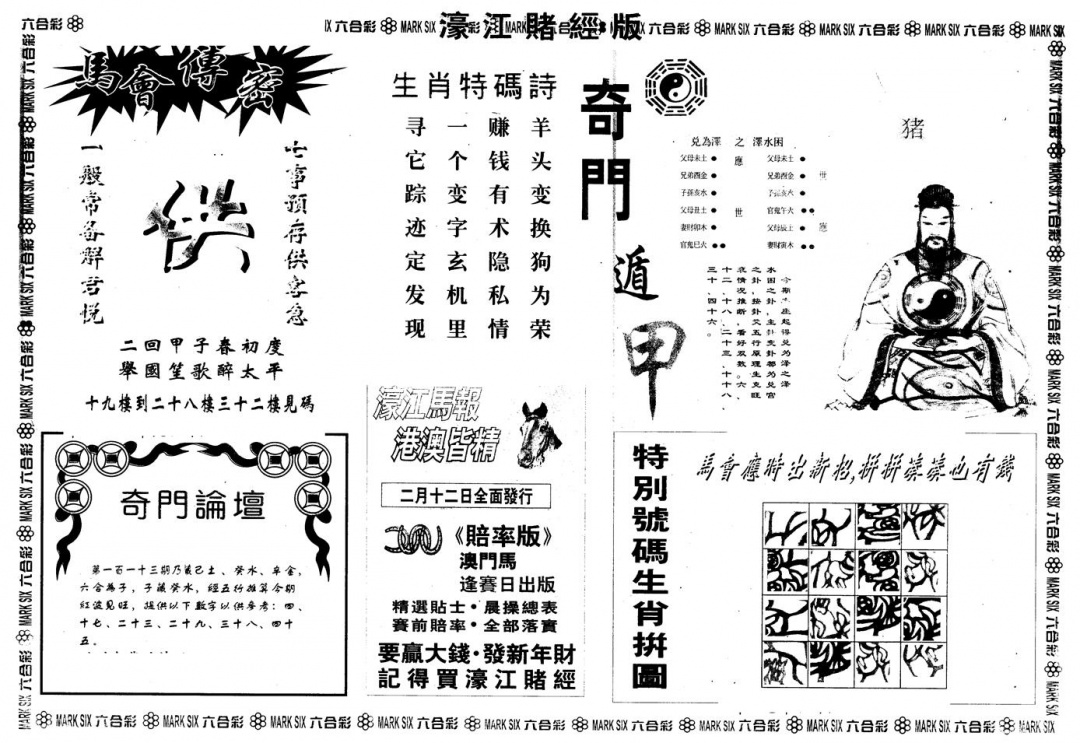 濠江賭經版
六合彩 MARK SIX 六合彩 MARK SIX 六合彩 MARK SIX 六合彩 MARK SIX 六合彩 MARK SIX 六合彩 MARK SIX
馬會傳密
七事預存供客急
供
一般常备解君悦
二回甲子春初度
舉國笙歌醉太平
十九樓到二十八樓三十二樓見碼
生肖特碼詩
羊头变换狗为荣
赚钱有术隐私情
一个变字玄机里
寻它踪迹定发现
奇門遁甲
兌為澤 之 澤水困
父母未土 應 父母未土
兄弟酉金 兄弟酉金 世
子孫亥水 子孫亥水
父母丑土 世 官鬼午火
妻財卯木 父母辰土 應
官鬼巳火 妻財寅木
今期
庄起得兌为泽之泽
水困之卦，主卦变卦都为兌宫
之卦，按卦爻五行原理生克旺
衰情况推断，看好双数。六、
十二、十八、二十三、十十八、
三十、四十六。
猪
濠江馬報
港澳皆精
二月十二日全面發行
《賠率版》
澳門馬
逢賽日出版
精選貼士·晨操總表
賽前賠率·全部落實
要贏大錢·發新年財
記得買濠江賭經
奇門論壇
第一百一十三期乃農己土、癸水、辛金，
六合為子，子藏癸水，經五行推算今期
紅波見旺，提供以下數字以供參考：四、
十七、二十三、二十九、三十八、四十
五。
特別號碼生肖拼圖
馬會應時出新招,拼拼湊湊也有錢